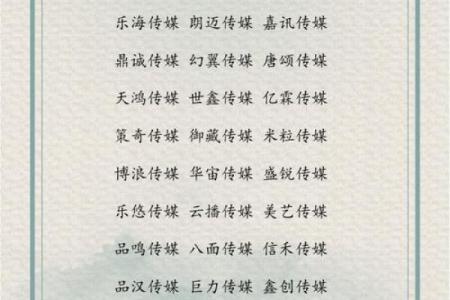 乐海传媒 朗迈传媒 嘉讯传媒
鼎诚传媒 幻翼传媒 唐颂传媒
天鸿传媒 世鑫传媒 亿霖传媒
策奇传媒 御藏传媒 米粒传媒
博浪传媒 华宙传媒 盛锐传媒
乐悠传媒 云播传媒 美艺传媒
品鸣传媒 八面传媒 信禾传媒
品汉传媒 巨力传媒 鑫创传媒